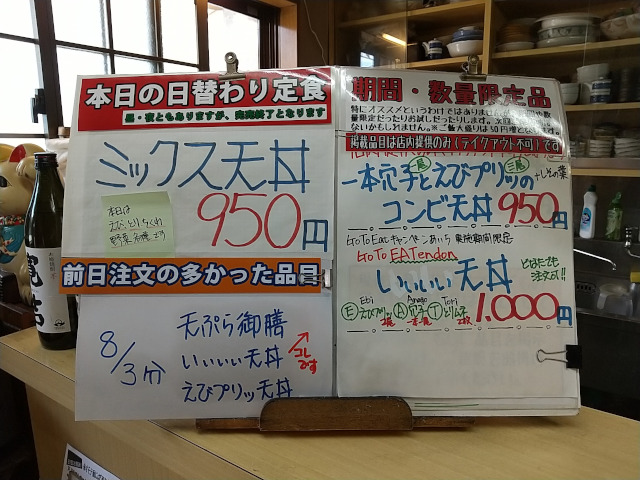 本日の日替わり定食
昼・夜ともありますが、完売終了となります
ミックス天丼
本日は
えび とり ちくわ
野菜 です
950円
前日注文の多かった品目
8/3分
天ぷら御膳
いいいい天丼
えびプリッ天丼
コレです
期間・数量限定品
特にオススメというわけではありません
数量限定だったりお試しだったりします。
ないかもしれません。※ご飯大盛りは50円増
掲載品目は店内提供のみ(テイクアウト不可)です
一本穴子とえびプリッの
+しその葉
コンビ天丼 950円
GoToEatキャンペーンあいち 実施期間限定
GoTo EATendon
いいいい天丼
1,000円
Ebi Anago Tori
Ⓔえびプリッ Ⓐ穴子 Ⓣとりムネ
2尾 一本 2枚